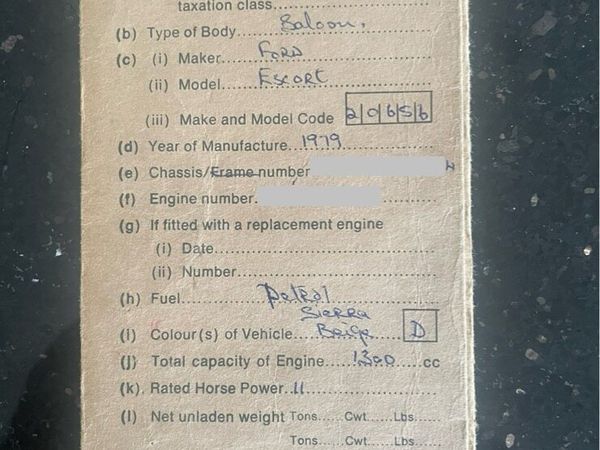 taxation class
(b) Type of Body Saloon.
(c) (i) Maker FORD
(ii) Model ESCORT
(iii) Make and Model Code 20656
(d) Year of Manufacture 1979
(e) Chassis/Frame number
(f) Engine number
(g) If fitted with a replacement engine
(i) Date
(ii) Number
(h) Fuel Petrol
Sierra
(i) Colour(s) of Vehicle Beige D
(j) Total capacity of Engine 1300 cc
(k) Rated Horse Power 11
(l) Net unladen weight Tons Cwt Lbs
Tons Cwt Lbs